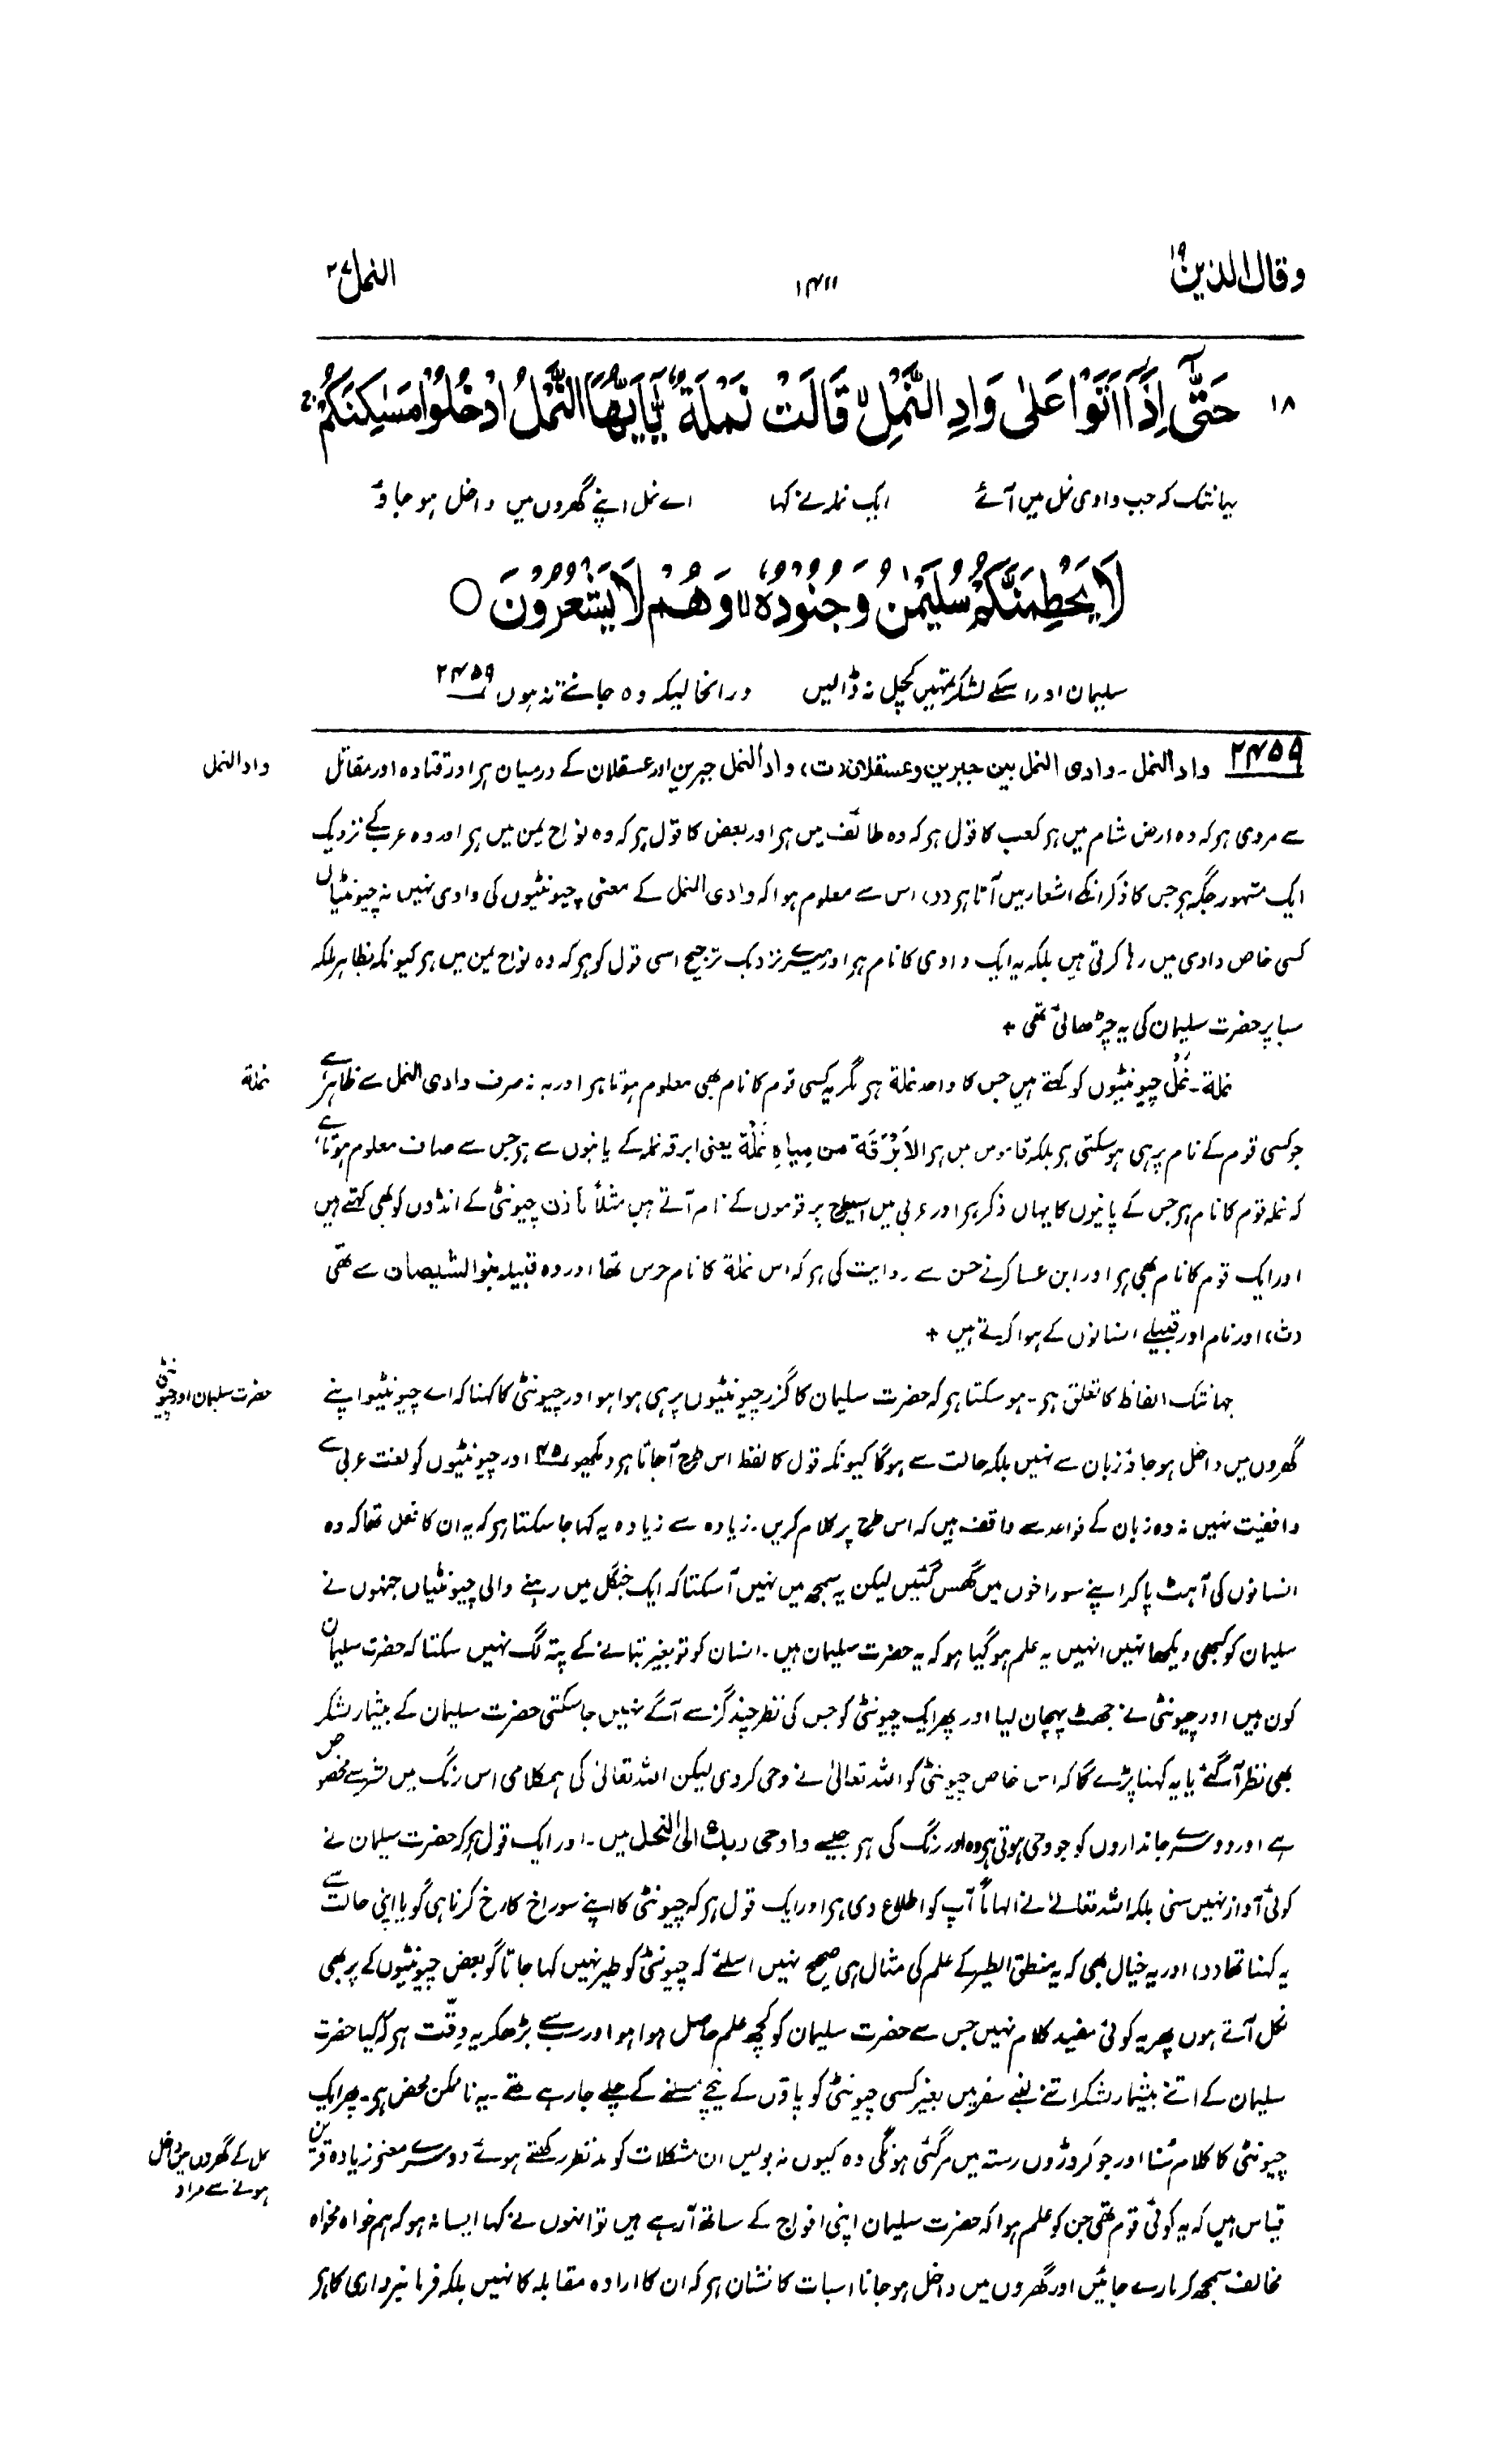 وقال الذین ۱۹
۱۴۱۱
النمل ۲۷
۱۸ حَتّٰۤی اِذَاۤ اَتَوْا عَلٰی وَادِ النَّمْلِ ۙ قَالَتْ نَمْلَةٌ یّٰۤاَیُّهَا النَّمْلُ ادْخُلُوْا مَسٰكِنَكُمْ ۚ
یہانتک کہ جب وادی نمل میں آئے ایک نملہ نے کہا اے نمل اپنے گھروں میں داخل ہو جاؤ
لَا یَحْطِمَنَّكُمْ سُلَیْمٰنُ وَ جُنُوْدُهٗ ۙ وَ هُمْ لَا یَشْعُرُوْنَ ○
سلیمان اور اسکے لشکر تمہیں کچل نہ ڈالیں درانحالیکہ وہ جانتے نہ ہوں ۲۴۵۹
واد النمل
۲۴۵۹ واد النمل۔ وادی النمل بین جبرین وعسقلان (ت)، واد النمل جبرین اور عسقلان کے درمیان ہر اور قتادہ اور مقاتل
سے مروی ہر کہ وہ ارض شام میں ہر کعب کا قول ہر کہ وہ طائف میں ہر اور بعض کا قول ہر کہ وہ نواح یمن میں ہر اور وہ عرب کے نزدیک
ایک مشہور جگہ ہر جس کا ذکر انکے اشعار میں آتا ہر (د)، اس سے معلوم ہوا کہ وادی النمل کے معنی چیونٹیوں کی وادی نہیں نہ چیونٹیاں
کسی خاص وادی میں رہا کرتی ہیں بلکہ یہ ایک وادی کا نام ہر اور میرے نزدیک ترجیح اسی قول کو ہر کہ وہ نواح یمن میں ہر کیونکہ بظاہر ملکہ
سبا پر حضرت سلیمان کی یہ چڑھائی تھی +
نملة
نملة۔ نَمْل چیونٹیوں کو کہتے ہیں جس کا واحد نملة ہر مگر یہ کسی قوم کا نام بھی معلوم ہوتا ہر اور یہ نہ صرف وادی النمل سے ظاہر ہے
جو کسی قوم کے نام پر ہی ہو سکتی ہر بلکہ قاموس میں ہر الاَبْرَقَة من مِیاہِ نَمْلَة یعنی ابرقہ نملہ کے پانیوں سے ہر جس سے صاف معلوم ہوتا ہے
کہ نملہ قوم کا نام ہر جس کے پانیوں کا یہاں ذکر ہر اور عربی میں اسیطرح پر قوموں کے نام آتے ہیں مثلاً مازن چیونٹی کے انڈوں کو بھی کہتے ہیں
اور ایک قوم کا نام بھی ہر اور ابن عساکر نے حسن سے روایت کی ہر کہ اس نملة کا نام حرس تھا اور وہ قبیلہ بنو الشیصان سے تھی
(ث)، اور نام اور قبیلے انسانوں کے ہوا کرتے ہیں +
حضرت سلیمان اور چیونٹی
جہانتک الفاظ کا تعلق ہر۔ ہو سکتا ہر کہ حضرت سلیمان کا گزر چیونٹیوں پر ہی ہوا ہو اور چیونٹی کا کہنا کہ اے چیونٹیو اپنے
گھروں میں داخل ہو جاؤ زبان سے نہیں بلکہ حالت سے ہوگا کیونکہ قول کا لفظ اس طرح آجاتا ہر دیکھو ۴۵ اور چیونٹیوں کو لغت عربی سے
واقفیت نہیں نہ وہ زبان کے قواعد سے واقف ہیں کہ اس طرح پر کلام کریں۔ زیادہ سے زیادہ یہ کہا جا سکتا ہر کہ یہ ان کا فعل تھا کہ وہ
انسانوں کی آہٹ پا کر اپنے سوراخوں میں گھس گئیں لیکن یہ سمجھ میں نہیں آسکتا کہ ایک جنگل میں رہنے والی چیونٹیاں جنہوں نے
سلیمان کو کبھی دیکھا نہیں انہیں یہ علم ہو گیا ہو کہ یہ حضرت سلیمان ہیں۔ انسان کو تو بغیر بتانے کے پتہ لگ نہیں سکتا کہ حضرت سلیمان
کون ہیں اور چیونٹی نے جھٹ پہچان لیا اور پھر ایک چیونٹی کو جس کی نظر چند گز سے آگے نہیں جا سکتی حضرت سلیمان کے بیشمار لشکر
بھی نظر آگئے یا یہ کہنا پڑے گا کہ اس خاص چیونٹی کو اللہ تعالیٰ نے وحی کر دی لیکن اللہ تعالیٰ کی ہمکلامی اس رنگ میں بشر سے مخصوص
ہے اور دوسرے جانداروں کو جو وحی ہوتی ہر وہ اور رنگ کی ہر جیسے واوحی ربك الی النحل میں۔ اور ایک قول ہر کہ حضرت سلیمان نے
کوئی آواز نہیں سنی بلکہ اللہ تعالیٰ نے الہاماً آپ کو اطلاع دی ہر اور ایک قول ہر کہ چیونٹی کا اپنے سوراخ کا رخ کرنا ہی گویا اپنی حالت سے
یہ کہنا تھا (د)، اور یہ خیال بھی کہ یہ منطق الطیر کے علم کی مثال ہی صحیح نہیں اسلئے کہ چیونٹی کو طیر نہیں کہا جاتا گو بعض چیونٹیوں کے پر بھی
نکل آتے ہوں پھر یہ کوئی مفید کلام نہیں جس سے حضرت سلیمان کو کچھ علم حاصل ہوا ہو اور سب سے بڑھکر یہ دقّت ہر کہ کیا حضرت
سلیمان کے اتنے بیشمار لشکر اتنے لمبے سفر میں بغیر کسی چیونٹی کو پاؤں کے نیچے مسلنے کے چلے جا رہے تھے۔ یہ ناممکن محض ہر۔ پھر ایک
نمل کے گھروں میں داخل ہونے سے مراد
چیونٹی کا کلام سُنا اور جو کروڑوں رستہ میں مر گئی ہونگی وہ کیوں نہ بولیں ان مشکلات کو مدنظر رکھتے ہوئے دوسرے معنے زیادہ قرین
قیاس ہیں کہ یہ کوئی قوم تھی جن کو علم ہوا کہ حضرت سلیمان اپنی افواج کے ساتھ آرہے ہیں تو انہوں نے کہا ایسا نہ ہو کہ ہم خواہ مخواہ
مخالف سمجھ کر مارے جائیں اور گھروں میں داخل ہو جانا اسبات کا نشان ہر کہ ان کا ارادہ مقابلہ کا نہیں بلکہ فرمانبرداری کا ہر